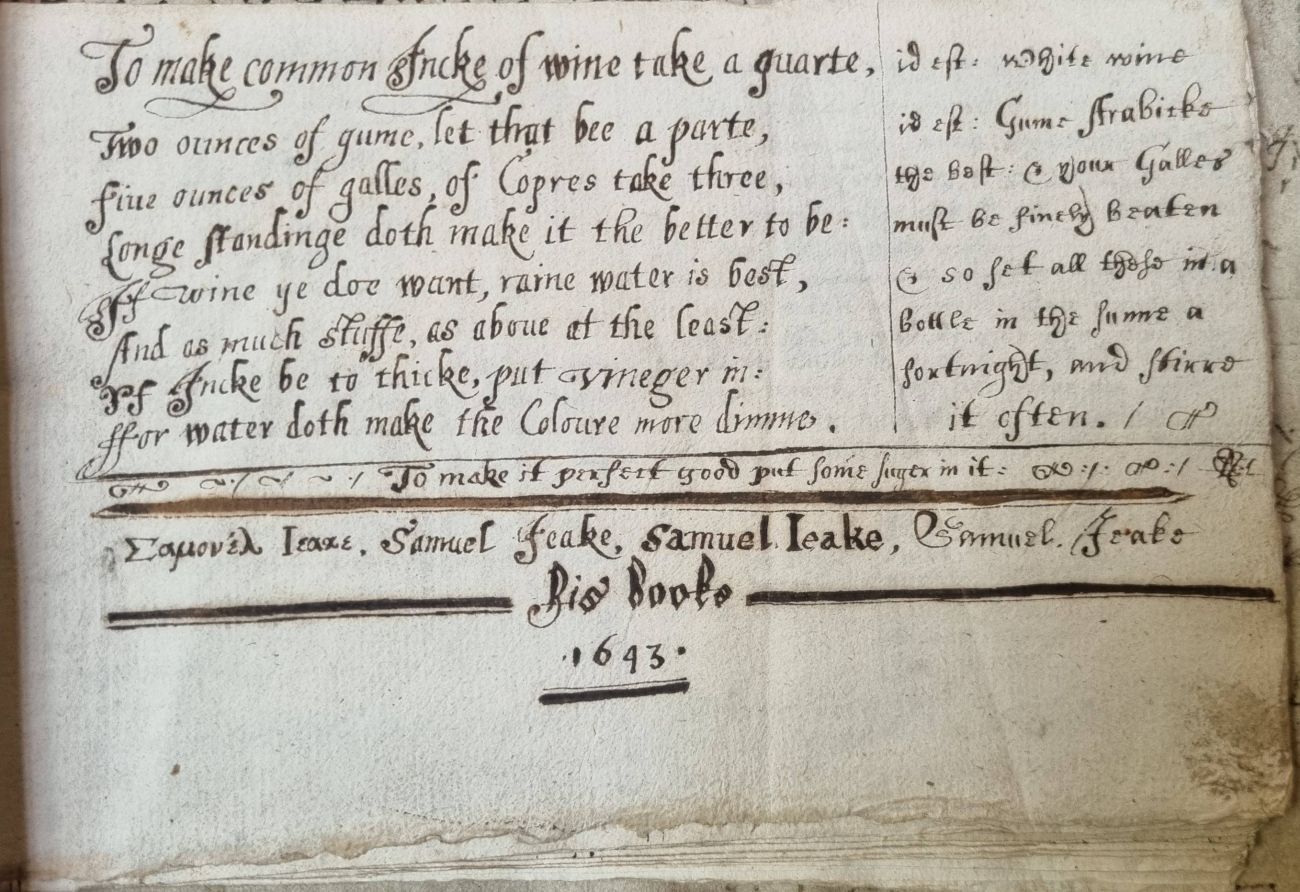 To make common Incke of wine take a quarte,
Two ounces of gume, let that bee a parte,
five ounces of galles, of Copres take three,
Longe standinge doth make it the better to be:
If wine ye doe want, raine water is best,
And as much stuffe, as above at the least:
If Incke be to thicke, put vineger in:
ffor water doth make the Coloure more dimme.
id est: white wine
id est: Gume Arabicke
the best: & your Galles
must be finely beaten
& so set all these in a
bottle in the sunne a
fortnight, and stirre
it often. /
To make it perfect good put some suger in it:
Σαμουέλ Ιεακε, Samuel Jeake, Samuel Ieake, Samuel. Jeake
His Booke
·1643·